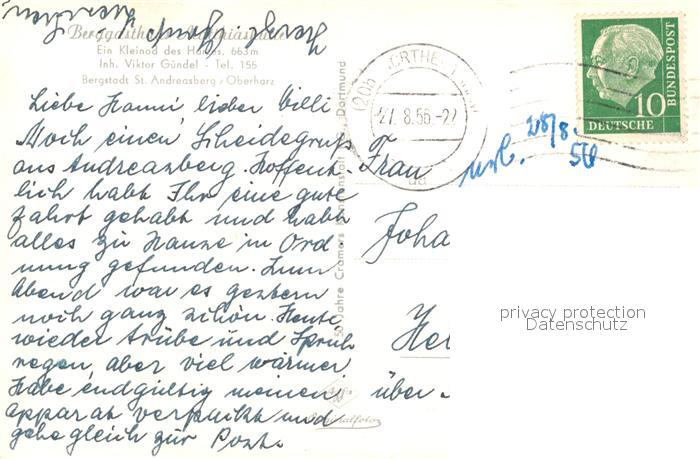 Ein Kleinod des Harzes. 663 m
Inh. Viktor Gündel · Tel. 155
Bergstadt St. Andreasberg / Oberharz
Liebe Hanni, lieber Willi
Noch einen Scheidegruß
aus Andreasberg. Hoffent-
lich habt Ihr eine gute
Fahrt gehabt und habt
alles zu Hause in Ord
nung gefunden. Zum
Abend war es gestern
noch ganz schön. Heute
wieder trübe und Sprüh
regen, aber viel wärmer
Habe endgültig meinen
Apparat verpackt und
gehe gleich zur Post.
50 Jahre Cramers Kunstanstalt Dortmund
27.8.56.-22
DEUTSCHE
BUNDESPOST
10
28/8.
56
Frau
Joha
über
privacy protection
Datenschutz